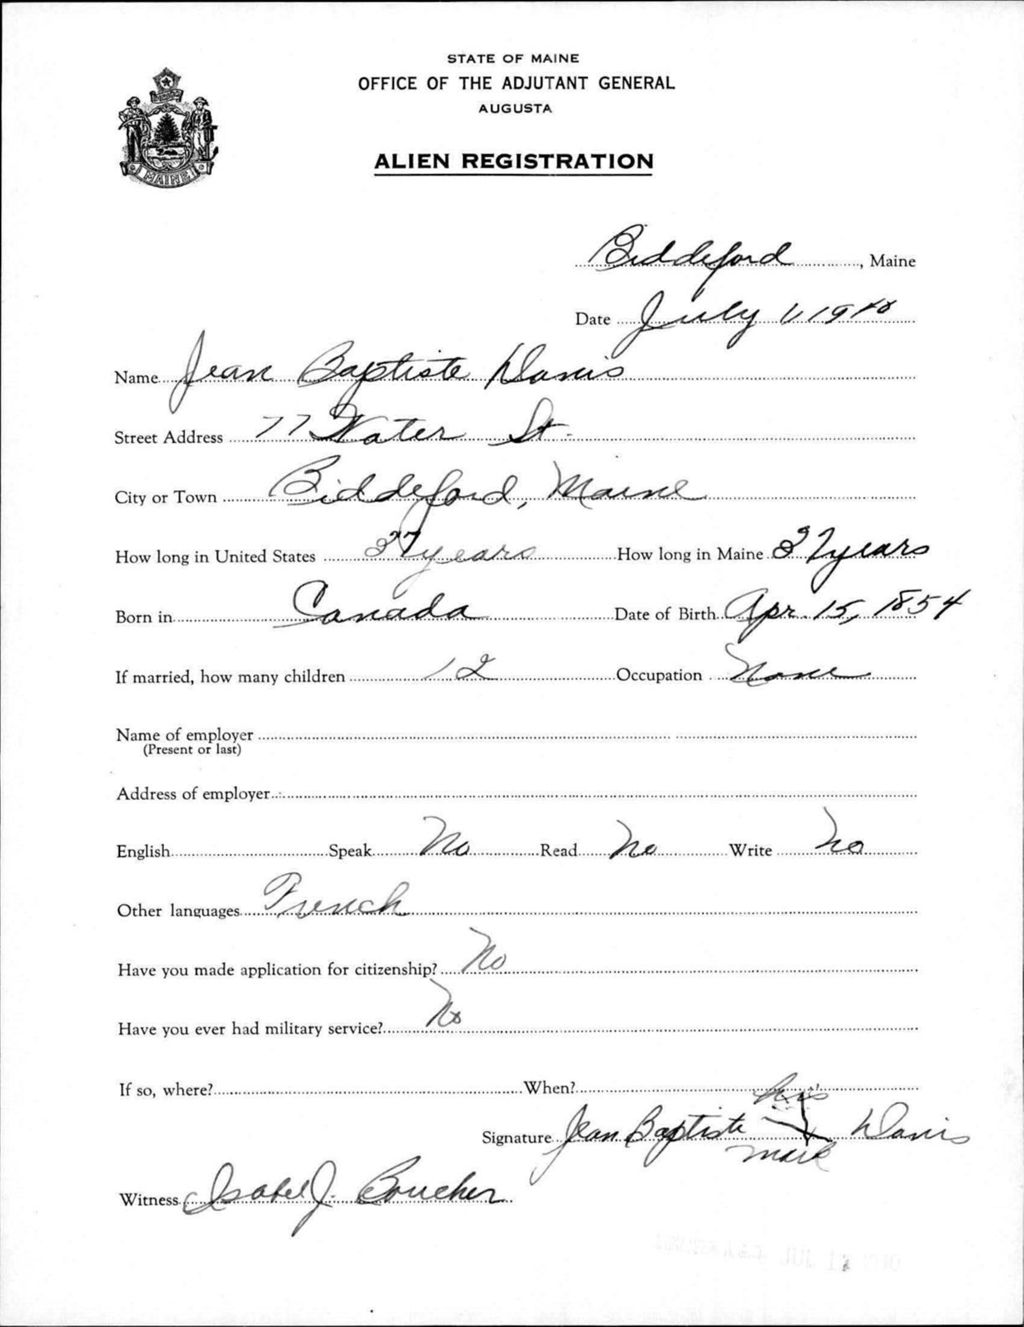 STATE OF MAINE
OFFICE OF THE ADJUTANT GENERAL
AUGUSTA
ALIEN REGISTRATION
MAINE
Biddeford, Maine
Date July 1, 1940
Name Jean Baptiste Danis
Street Address 77 Water St.
City or Town Biddeford, Maine
How long in United States 37 years How long in Maine 37 years
Born in Canada Date of Birth Apr. 15, 1854
If married, how many children 12 Occupation None
Name of employer
(Present or last)
Address of employer
English Speak No Read No Write No
Other languages French
Have you made application for citizenship? No
Have you ever had military service? No
If so, where? When?
his
Signature Jean Baptiste X Danis
mark
Witness Isabel J. Boucher